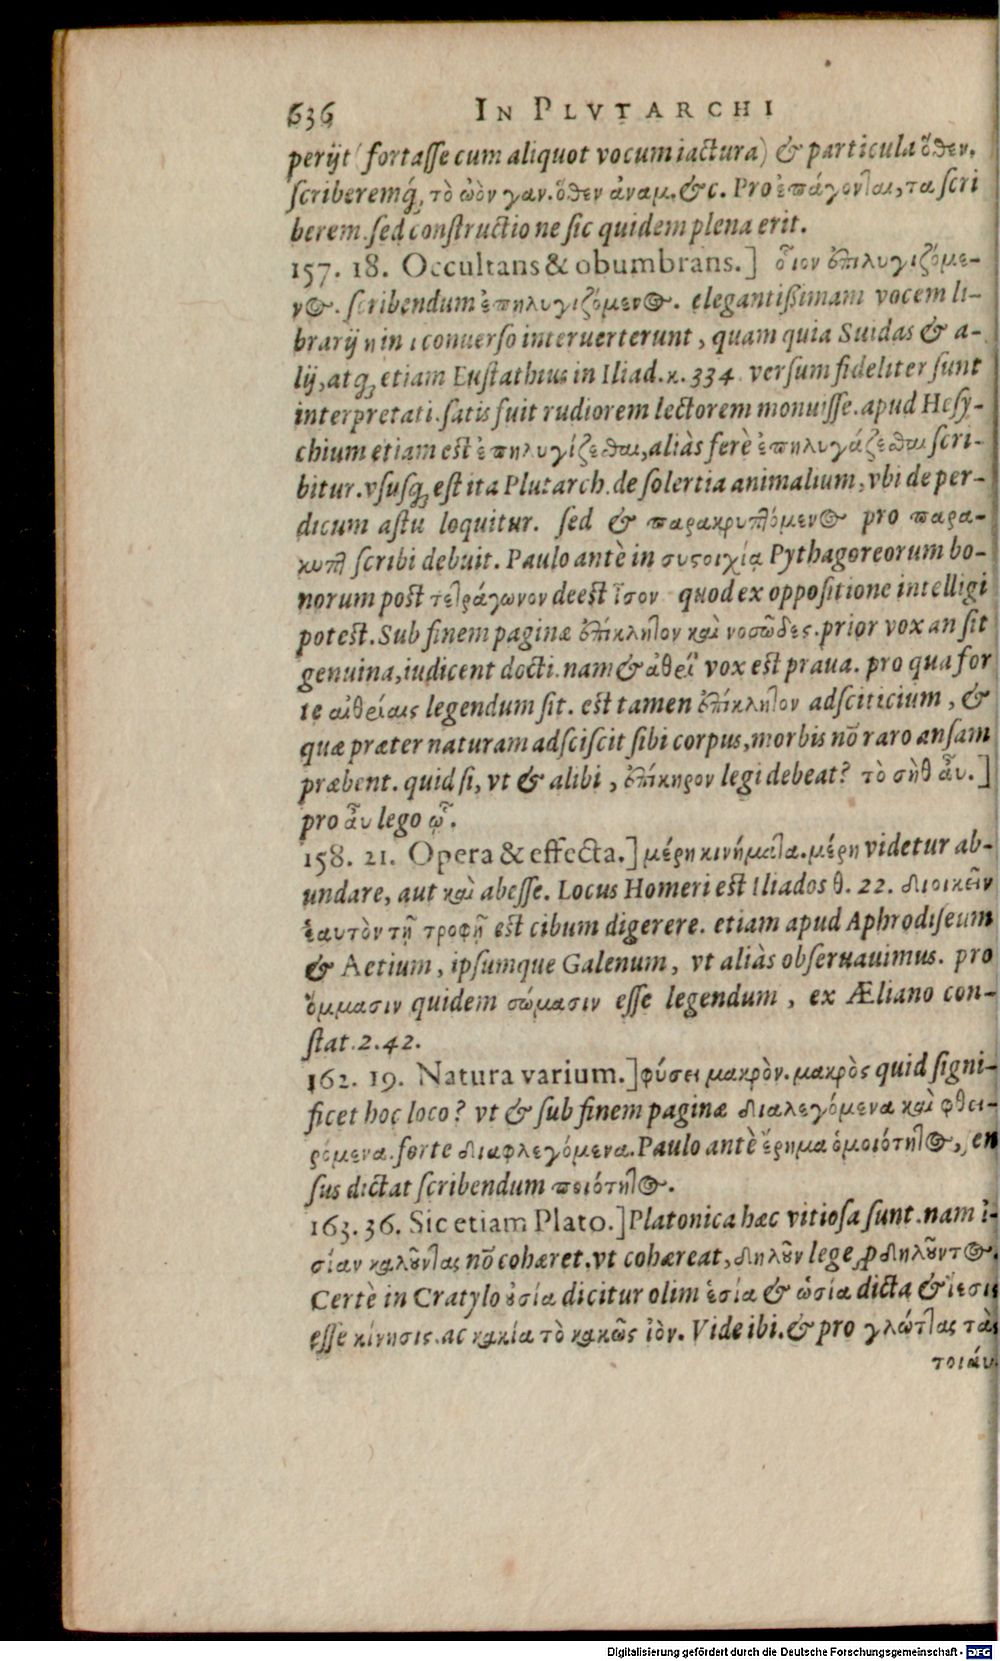 636 IN PLVTARCHI
perijt (fortasse cum aliquot vocum iactura) & particula ὅθεν.
scriberemq́; τὸ ὠὸν γαν. ὅθεν ἀναμ. &c. Pro ἐπάγονται, τα scri
berem. sed constructio ne sic quidem plena erit.
157. 18. Occultans & obumbrans.] οἷον ἐπιλυγιζόμε-
νος. scribendum ἐπηλυγιζόμενος. elegantißimam vocem li-
brarij η in ι conuerso interuerterunt, quam quia Suidas & a-
lij, atq; etiam Eustathius in Iliad. κ. 334. versum fideliter sunt
interpretati. satis fuit rudiorem lectorem monuisse. apud Hesy-
chium etiam est ἐπηλυγίζεσθαι, aliàs ferè ἐπηλυγάζεσθαι scri-
bitur. vsusq; est ita Plutarch. de solertia animalium, vbi de per-
dicum astu loquitur. sed & παρακρυπτόμενος pro παρα-
κυπτ scribi debuit. Paulo antè in συστοιχίᾳ Pythagoreorum bo-
norum post τετράγωνον deest ἴσον quod ex oppositione intelligi
potest. Sub finem paginæ ἐπίκλητον καὶ νοσῶδες. prior vox an sit
genuina, iudicent docti. nam & ἀθεΐ vox est praua. pro qua for
te αἰθείαις legendum sit. est tamen ἐπίκλητον adsciticium, &
quæ præter naturam adsciscit sibi corpus, morbis nō raro ansam
præbent. quid si, vt & alibi, ἐπίκηρον legi debeat? τὸ σῆθ ἂυ.]
pro ἂυ lego ᾧ.
158. 21. Opera & effecta.] μέρη κινήματα. μέρη videtur ab-
undare, aut καὶ abesse. Locus Homeri est Iliados θ. 22. διοικεῖν
ἑαυτὸν τῇ τροφῇ est cibum digerere. etiam apud Aphrodiseum
& Aetium, ipsumque Galenum, vt aliàs obseruauimus. pro
ὄμμασιν quidem σώμασιν esse legendum, ex Æliano con-
stat. 2. 42.
162. 19. Natura varium.] φύσει μακρὸν. μακρὸς quid signi-
ficet hoc loco? vt & sub finem paginæ διαλεγόμενα καὶ φθει-
ρόμενα. forte διαφλεγόμενα. Paulo antè ἔρημα ὁμοιότητος, sen
sus dictat scribendum ποιότητος.
163. 36. Sic etiam Plato.] Platonica hæc vitiosa sunt. nam ἰ-
σίαν καλοῦντας nō cohæret. vt cohæreat, δηλοῦν lege ꝓ δηλοῦντος.
Certè in Cratylo οὐσία dicitur olim ἐσία & ὠσία dicta & ἴεσις
esse κίνησις. ac κακία τὸ κακῶς ἰὸν. Vide ibi. & pro γλώττας τὰς
τοιάυ-
Digitalisierung gefördert durch die Deutsche Forschungsgemeinschaft - DFG